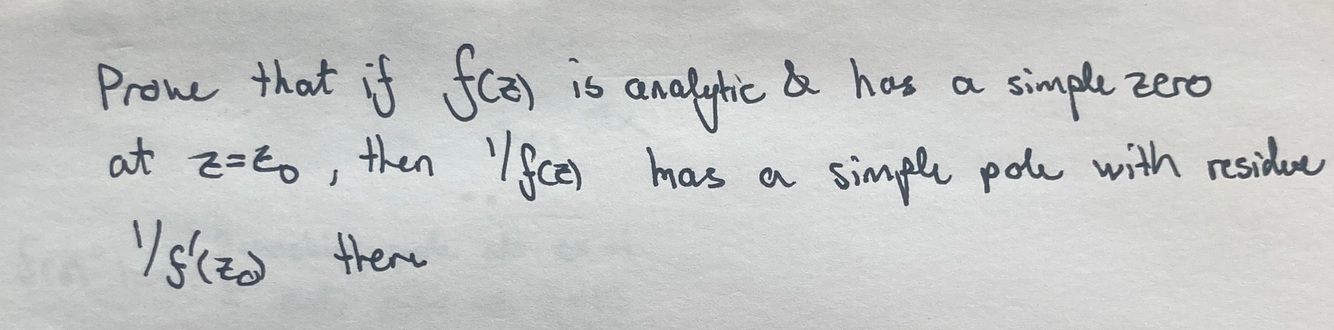 Prove that if f(z) is analytic & has a simple zero
at z=z₀, then 1/f(z) has a simple pole with residue
1/f'(z₀) there